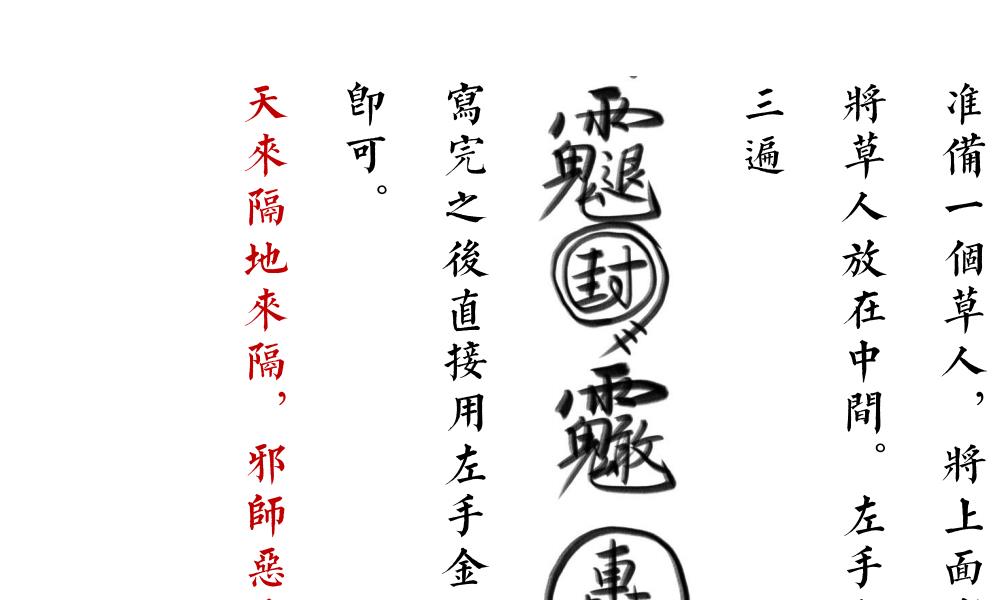 准備一個草人，將上面
將草人放在中間。左手
三遍
封
寫完之後直接用左手金
即可。
天來隔地來隔，邪師惡